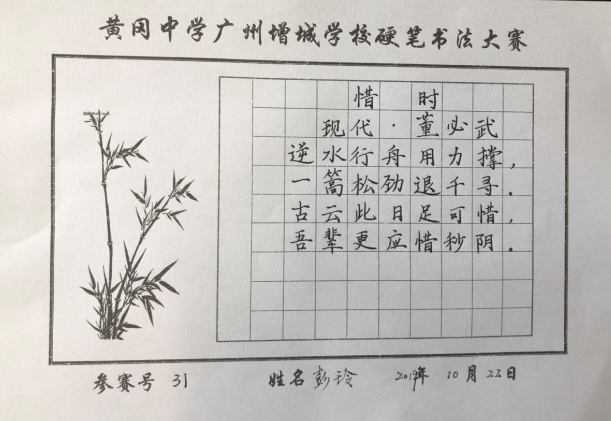 黄冈中学广州增城学校硬笔书法大赛
惜 时
现代·董必武
逆水行舟用力撑，
一篙松劲退千寻。
古云此日足可惜，
吾辈更应惜秒阴。
参赛号 31 姓名 彭玲 2019年 10月 22日